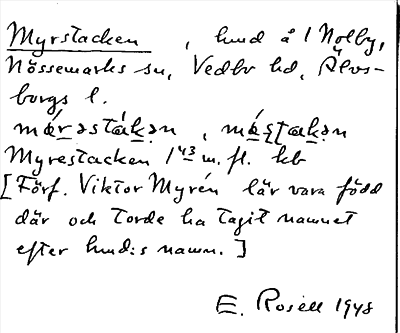 Myrstacken, hmd å 1 Nolby,
Nössemarks sn, Vedbo hd, Älvs-
borgs l.
mǿrəstákən, mǿstakən
Myrestacken 1/43 m. fl. kb
[Förf. Viktor Myrén lär vara född
där och torde ha tagit namnet
efter hmd:s namn.]
E. Rosell 1948